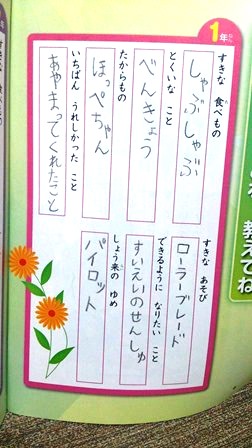 1年
すきな 食べもの
しゃぶしゃぶ
とくいな こと
べんきょう
たからもの
ほっぺちゃん
いちばん うれしかった こと
あやまってくれたこと
すきな あそび
ローラーブレード
できるように なりたい こと
すいえいのせんしゅ
しょう来の ゆめ
パイロット
教えてね